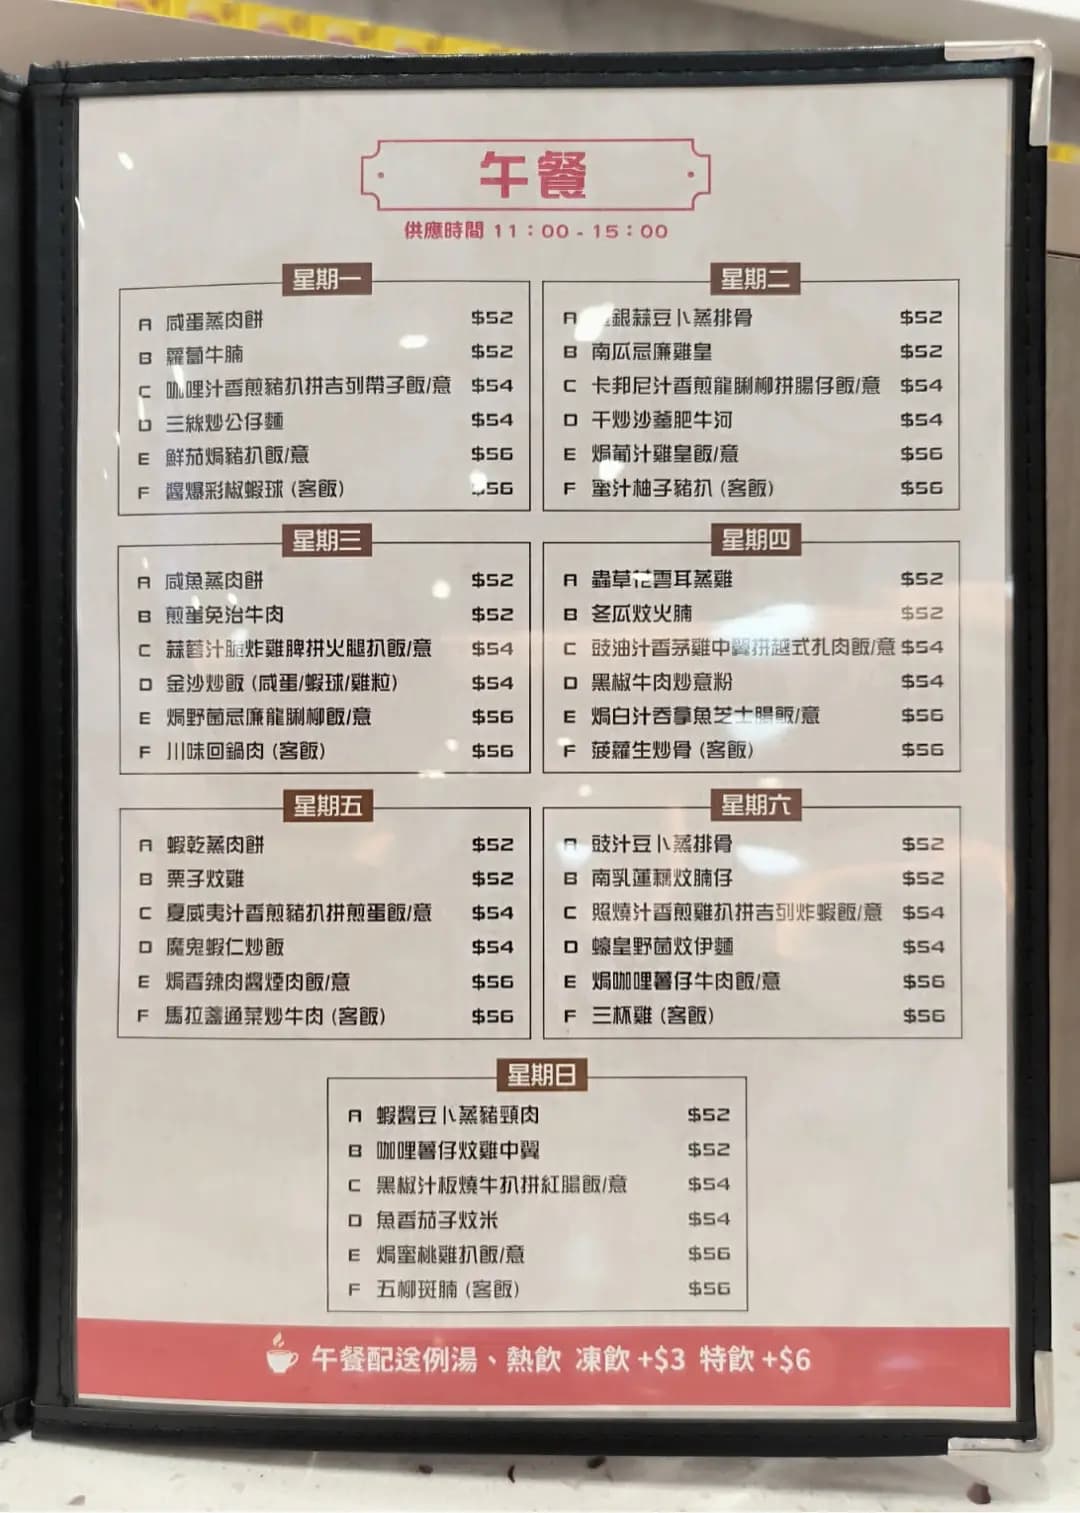 午餐
供應時間 11：00 - 15：00
星期一
A 咸蛋蒸肉餅 $52
B 蘿蔔牛腩 $52
C 咖哩汁香煎豬扒拼吉列帶子飯/意 $54
D 三絲炒公仔麵 $54
E 鮮茄焗豬扒飯/意 $56
F 醬爆彩椒蝦球 (客飯) $56
星期二
A 銀蒜豆卜蒸排骨 $52
B 南瓜忌廉雞皇 $52
C 卡邦尼汁香煎龍脷柳拼腸仔飯/意 $54
D 干炒沙爹肥牛河 $54
E 焗葡汁雞皇飯/意 $56
F 蜜汁柚子豬扒 (客飯) $56
星期三
A 咸魚蒸肉餅 $52
B 煎蛋免治牛肉 $52
C 蒜蓉汁脆炸雞脾拼火腿扒飯/意 $54
D 金沙炒飯 (咸蛋/蝦球/雞粒) $54
E 焗野菌忌廉龍脷柳飯/意 $56
F 川味回鍋肉 (客飯) $56
星期四
A 蟲草花雲耳蒸雞 $52
B 冬瓜炆火腩 $52
C 豉油汁香茅雞中翼拼越式扎肉飯/意 $54
D 黑椒牛肉炒意粉 $54
E 焗白汁吞拿魚芝士腸飯/意 $56
F 菠蘿生炒骨 (客飯) $56
星期五
A 蝦乾蒸肉餅 $52
B 栗子炆雞 $52
C 夏威夷汁香煎豬扒拼煎蛋飯/意 $54
D 魔鬼蝦仁炒飯 $54
E 焗香辣肉醬煙肉飯/意 $56
F 馬拉盞通菜炒牛肉 (客飯) $56
星期六
A 豉汁豆卜蒸排骨 $52
B 南乳蓮藕炆腩仔 $52
C 照燒汁香煎雞扒拼吉列炸蝦飯/意 $54
D 蠔皇野菌炆伊麵 $54
E 焗咖哩薯仔牛肉飯/意 $56
F 三杯雞 (客飯) $56
星期日
A 蝦醬豆卜蒸豬頸肉 $52
B 咖哩薯仔炆雞中翼 $52
C 黑椒汁板燒牛扒拼紅腸飯/意 $54
D 魚香茄子炆米 $54
E 焗蜜桃雞扒飯/意 $56
F 五柳斑腩 (客飯) $56
午餐配送例湯、熱飲 凍飲+$3 特飲+$6